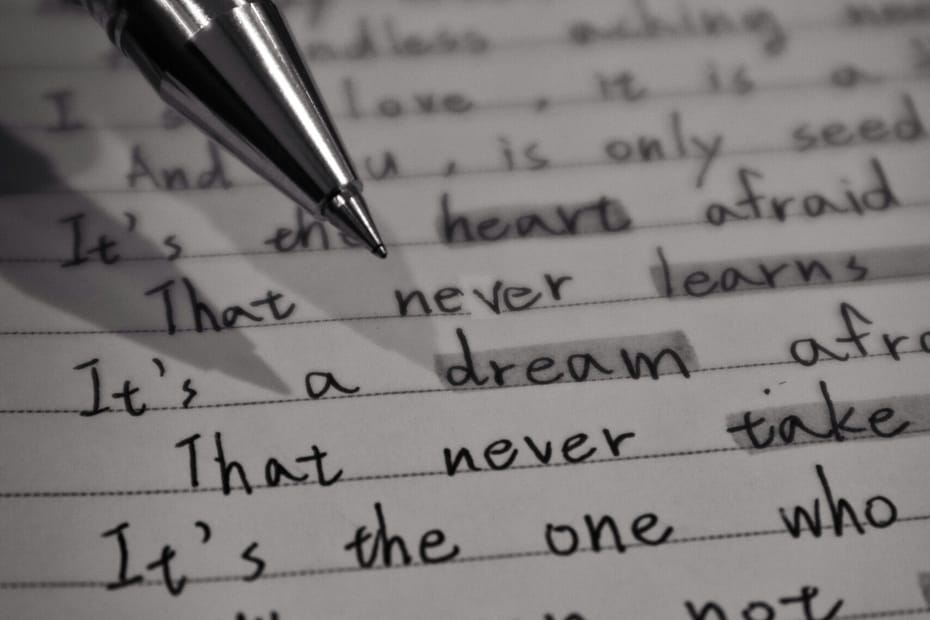 aching
I love, it is a
And , is only seed
It's the heart afraid
That never learns
It's a dream
That never take
It's the one who
not